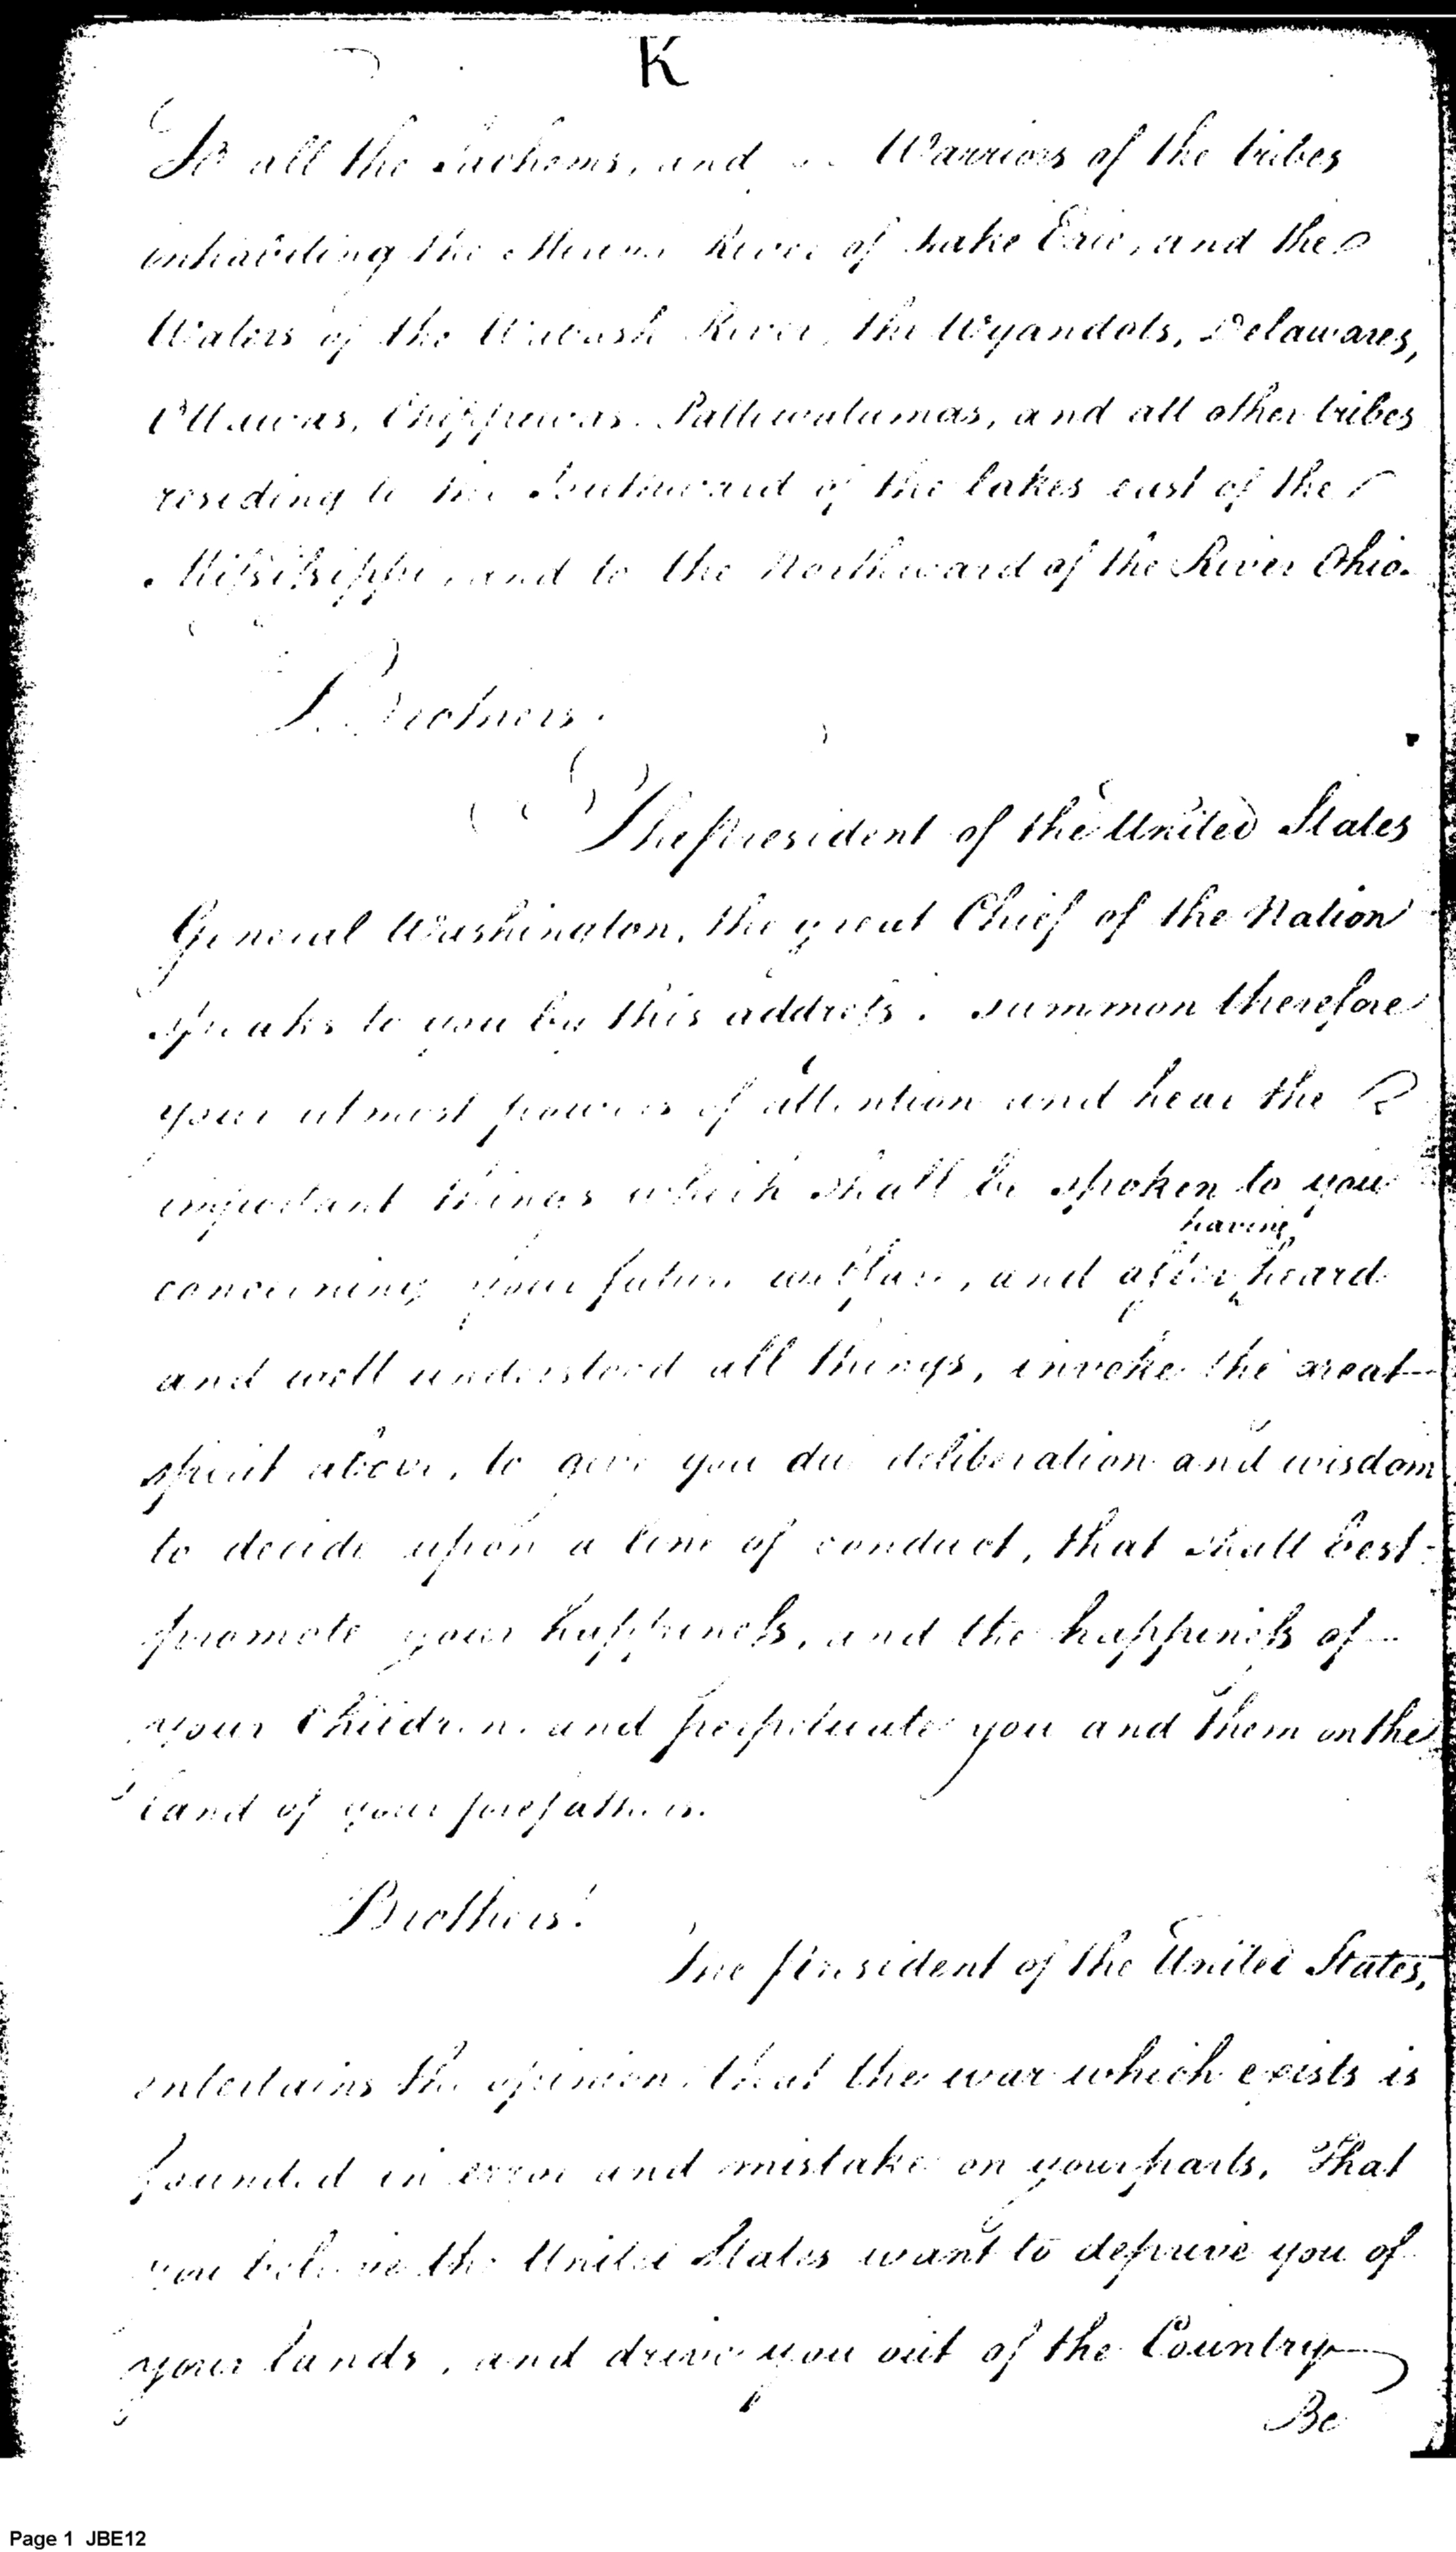 K
To all the Sachems, and Warriors of the tribes
inhabiting the Miami River of Lake Erie, and the
Waters of the Wabash River, the Wyandots, Delawares,
Ottawas, Chippewas, Pattiwatamas, and all other tribes
residing to the Southward of the lakes east of the
Missisippi, and to the Northward of the River Ohio.
Brothers.
The president of the United States
General Washington, the great Chief of the Nation
speaks to you by this address. summon therefore
your utmost powers of attention and hear the
important things which shall be spoken to you
having
concerning your future welfare, and after heard
and well understood all things, invoke the great
spirit above, to give you due deliberation and wisdom
to decide upon a line of conduct, that shall best
promote your happiness, and the happiness of
your Children, and perpetuate you and them on the
land of your forefathers.
Brothers!
The president of the United States,
entertains the opinion, that the war which exists is
founded in error and mistake on your parts. That
you believe the United States want to deprive you of
your lands, and drive you out of the Country
Be
Page 1 JBE12